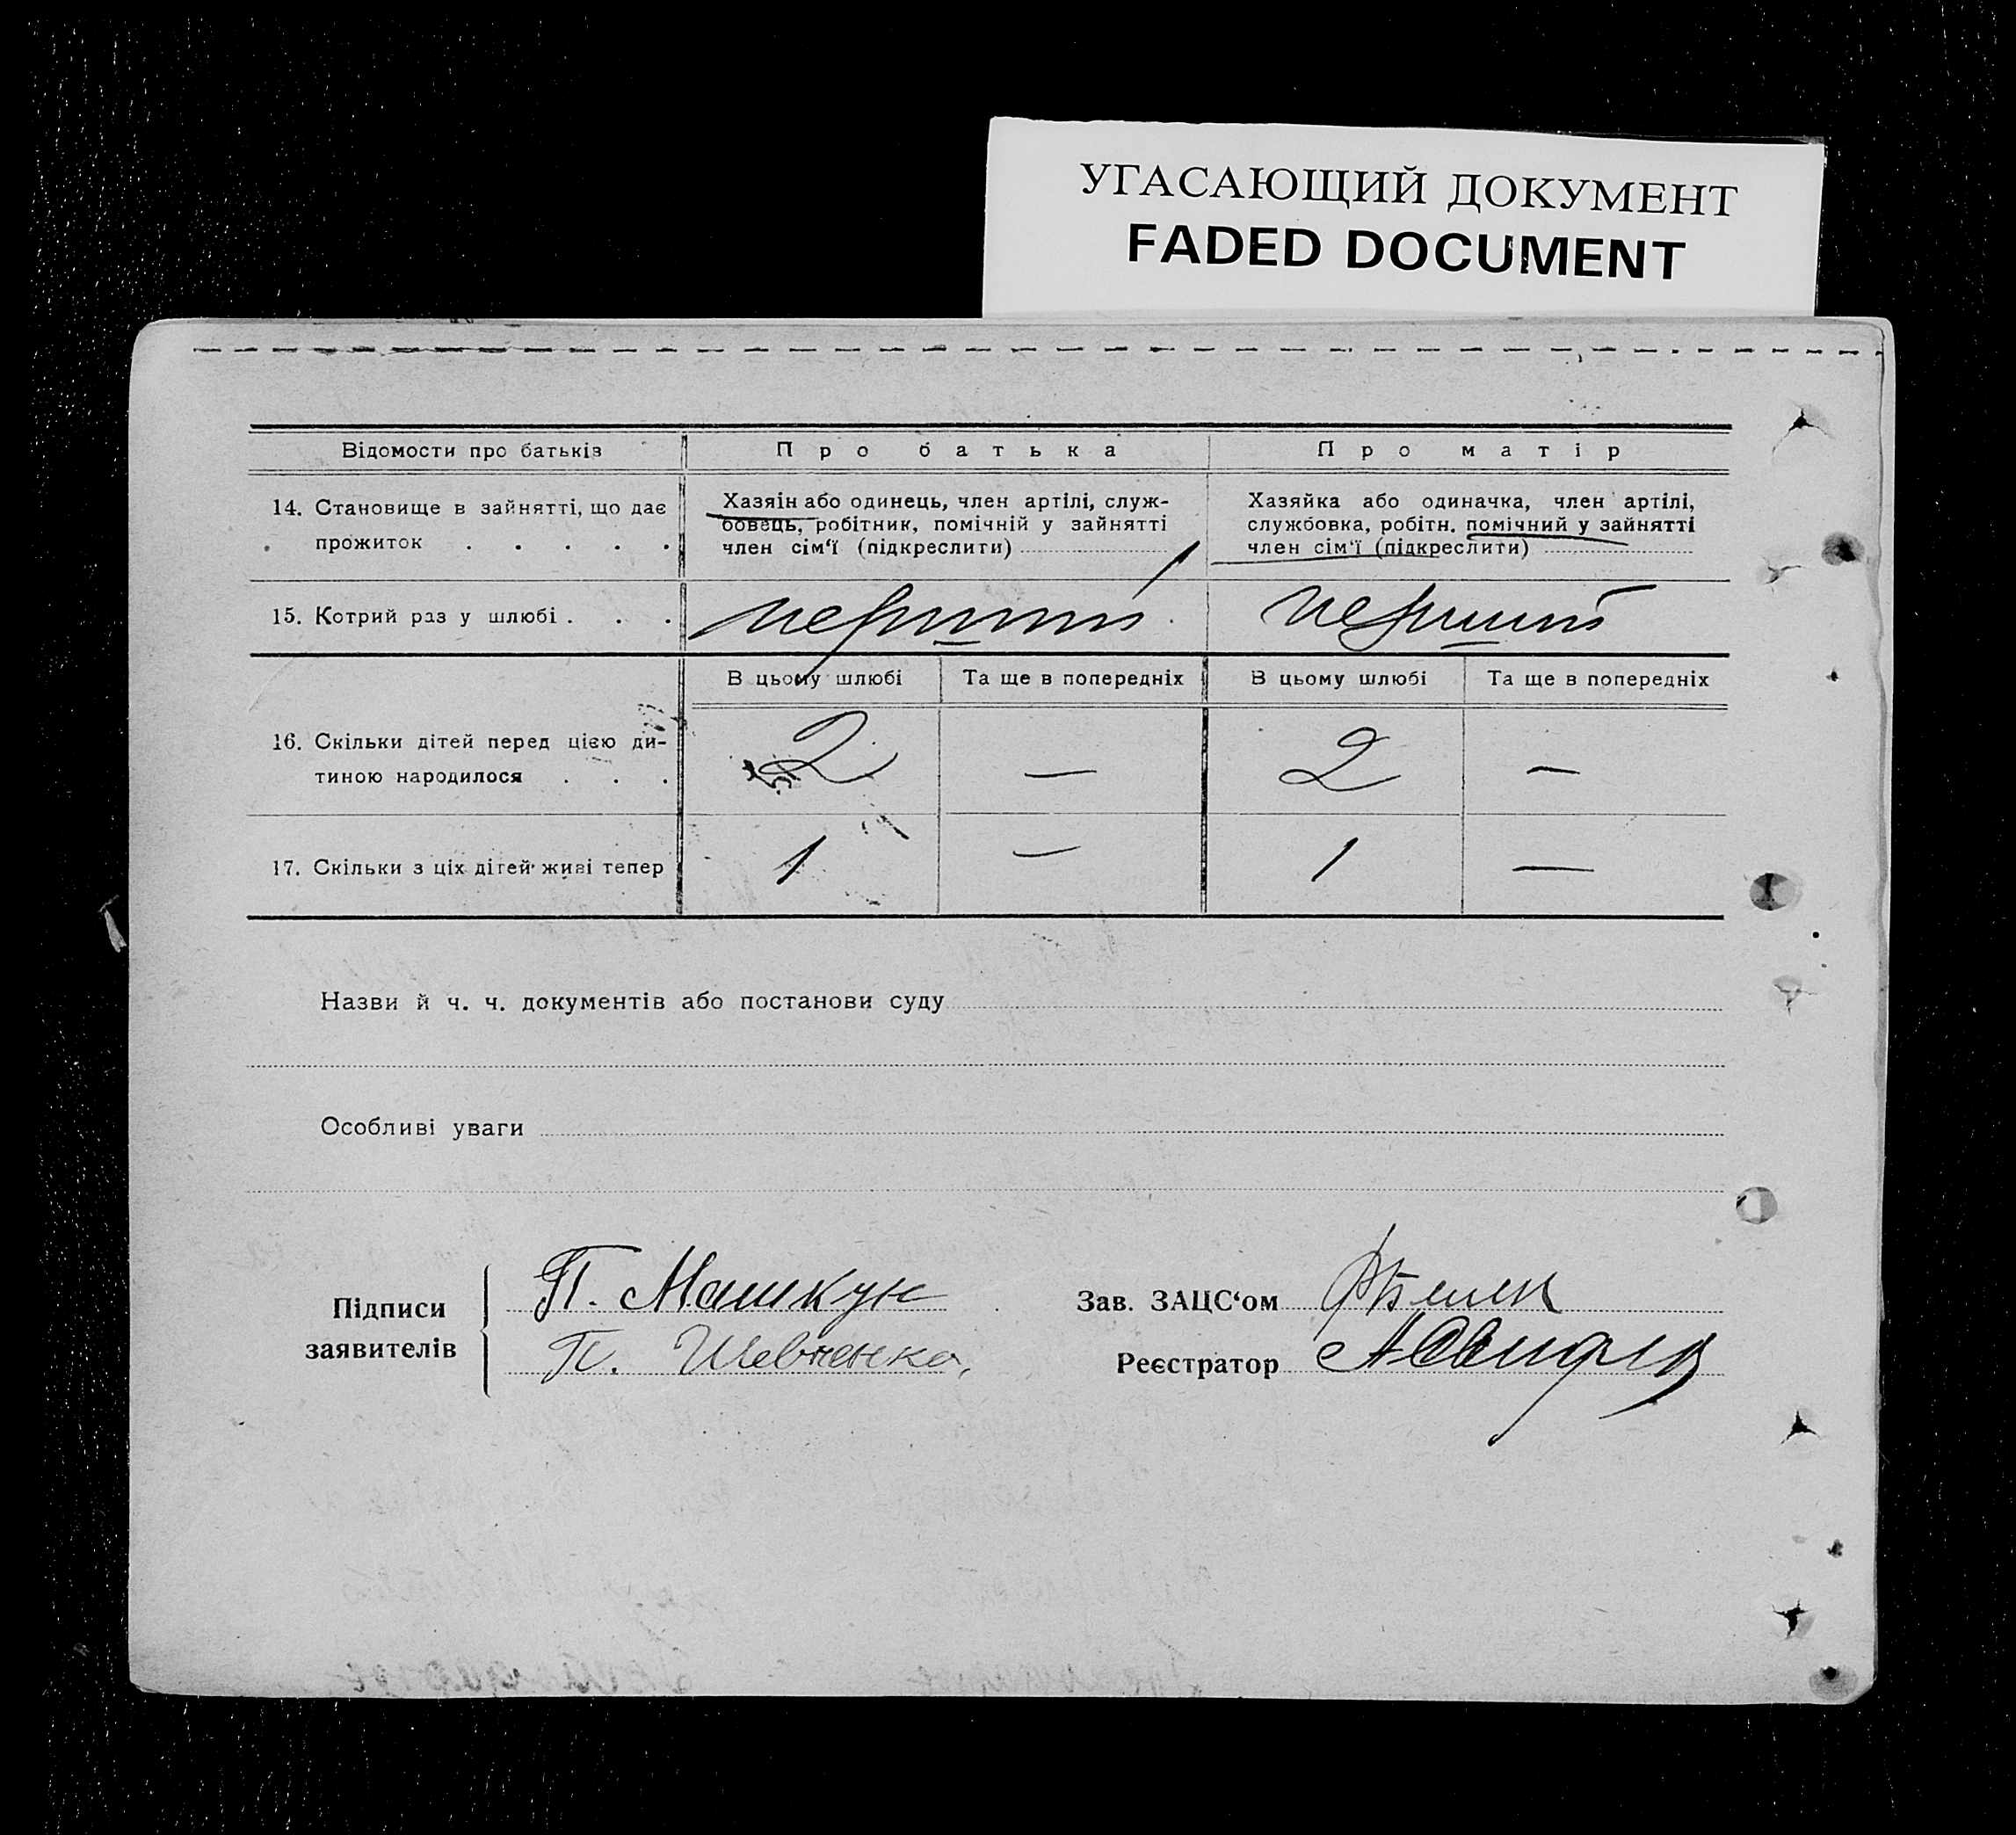 УГАСАЮЩИЙ ДОКУМЕНТ
FADED DOCUMENT
Відомости про батьків
Про батька
Про матір
14. Становище в зайнятті, що дає
прожиток . . . . .
Хазяїн або одинець, член артілі, служ-
бовець, робітник, помічній у зайнятті
член сім'ї (підкреслити)
Хазяйка або одиначка, член артілі,
службовка, робітн. помічний у зайнятті
член сім'ї (підкреслити)
15. Котрий раз у шлюбі . . .
перший
перший
В цьому шлюбі
Та ще в попередніх
В цьому шлюбі
Та ще в попередніх
16. Скільки дітей перед цією ди-
тиною народилося . . .
2
—
2
—
17. Скільки з ціх дітей живі тепер
1
—
1
—
Назви й ч. ч. документів або постанови суду
Особливі уваги
Підписи
заявителів
П. Машкун
П. Шевченко,
Зав. ЗАЦС‘ом
Реєстратор